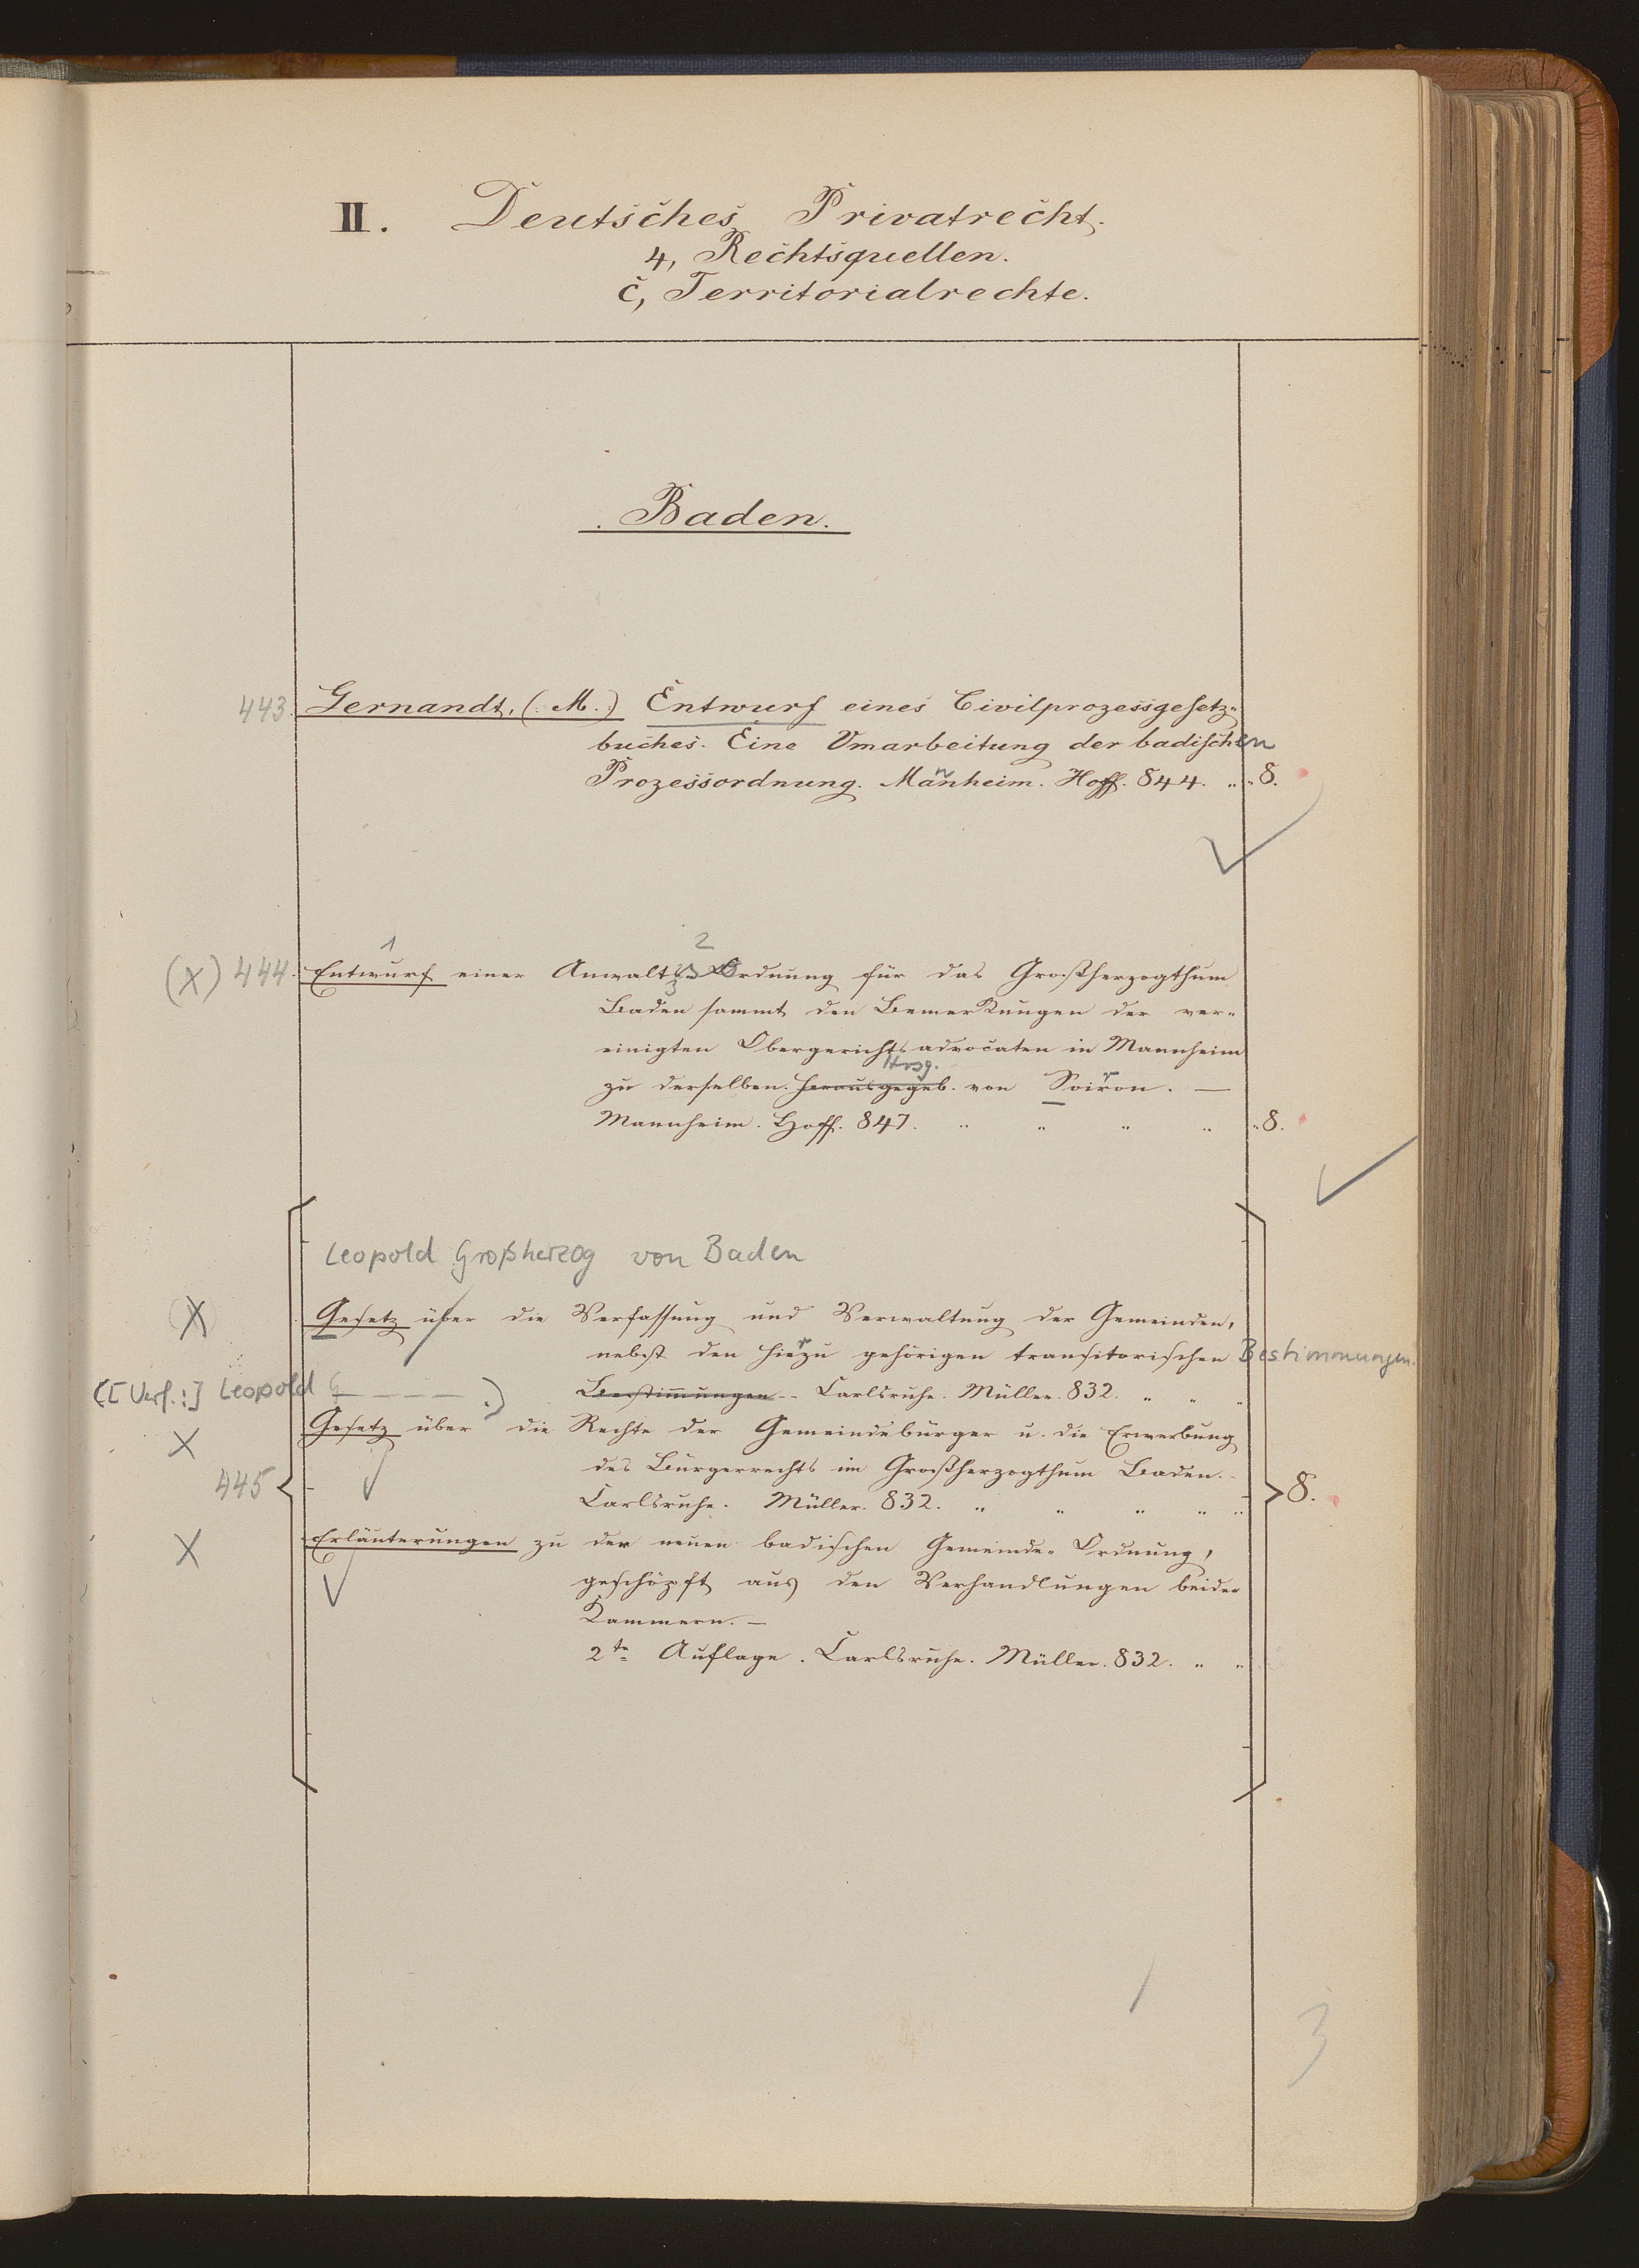 II. Deutsches Privatrecht.
4, Rechtsquellen.
c, Territorialrechte.
Baden.
443. Gernandt, (: M. :) Entwurf eines Civilprozessgesetz-
buches. Eine Umarbeitung der badischen
Prozessordnung. Mannheim. Hoff. 844. „ „ 8.
1 2
(X) 444. Entwurf einer Anwalts Ordnung für das Großherzogthum
Baden sammt den Bemerkungen der ver-
einigten Obergerichtsadvocaten in Mannheim
Hrsg.
zu derselben. herausgegeb. von Soiron. —
Mannheim. Hoff. 847. „ „ „ „ „ 8.
Leopold Großherzog von Baden
X Gesetz über die Verfassung und Verwaltung der Gemeinden,
nebst den hierzu gehörigen transitorischen Bestimmungen.
([Verf.:] Leopold G – – – – .) Bestimmungen -- Carlsruhe. Müller. 832. „ „ „
X Gesetz über die Rechte der Gemeindebürger u. die Erwerbung
des Bürgerrechts im Großherzogthum Baden. -
445 Carlsruhe. Müller. 832. „ „ „ „ „ 8.
X Erläuterungen zu der neuen badischen Gemeinde- Ordnung,
geschöpft aus den Verhandlungen beider
Kammern. —
2te Auflage. Carlsruhe. Müller. 832. „ „
3